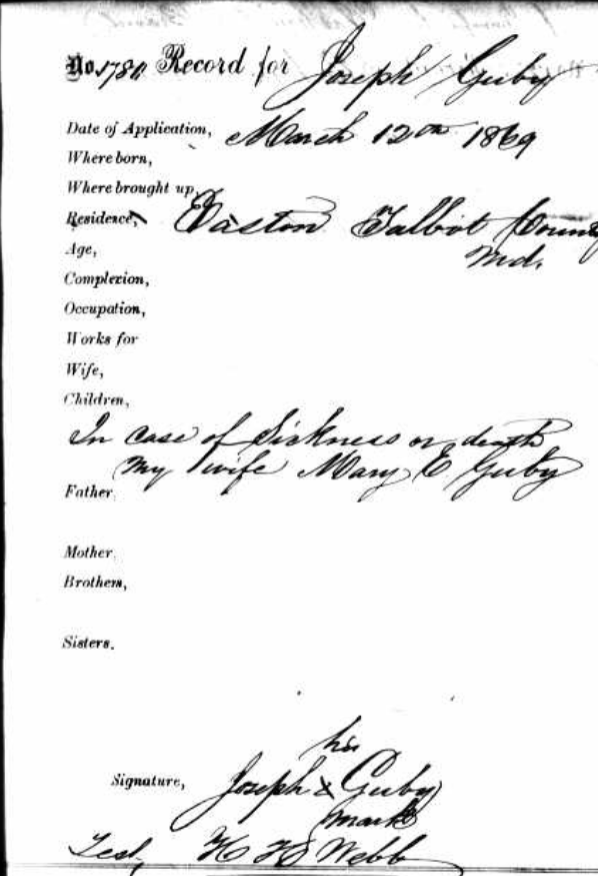 No. 1780 Record for Joseph Guby
Date of Application, March 12th 1869
Where born,
Where brought up,
Residence, Easton Talbot County
Md.
Age,
Complexion,
Occupation,
Works for
Wife,
Children,
In case of Sickness or death
My wife Mary E Guby
Father,
Mother,
Brothers,
Sisters,
his
Signature, Joseph x Guby
mark
Test, H H Webb